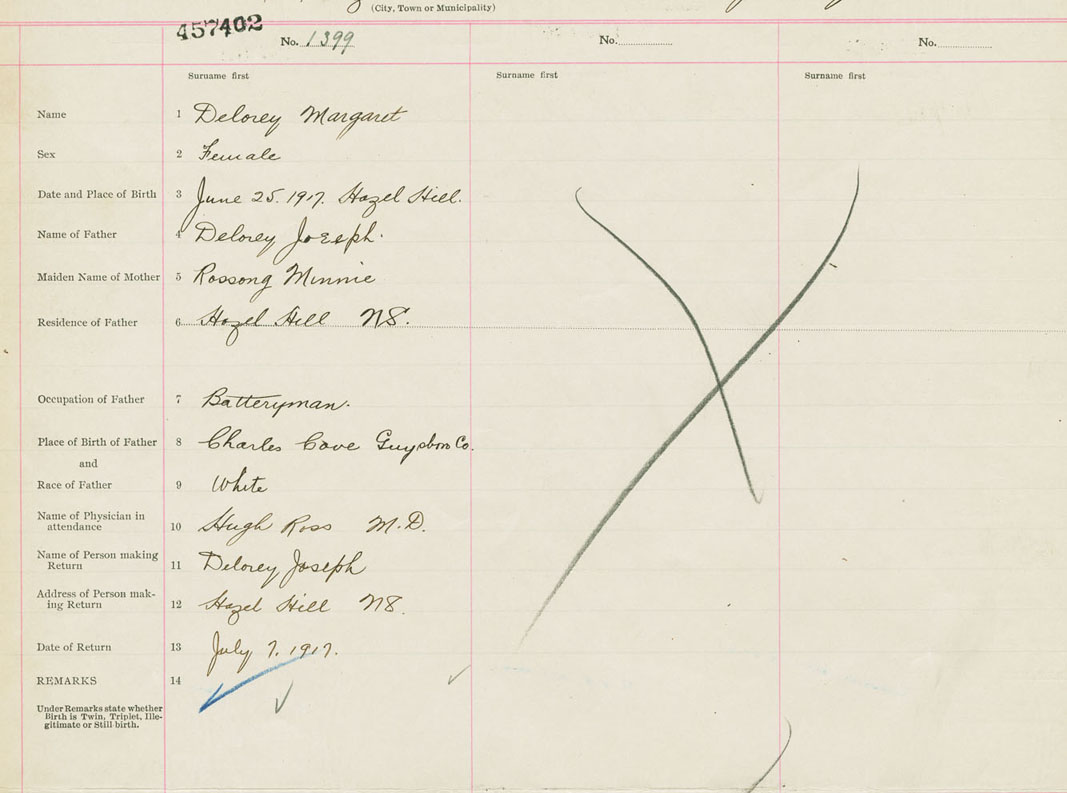 (City, Town or Municipality)
457402
No. 1399
No.
No.
Surname first
Surname first
Surname first
Name 1 Delorey Margaret
Sex 2 Female
Date and Place of Birth 3 June 25. 1917. Hazel Hill.
Name of Father 4 Delorey Joseph.
Maiden Name of Mother 5 Rossong Minnie
Residence of Father 6 Hazel Hill NS.
Occupation of Father 7 Batteryman.
Place of Birth of Father 8 Charles Cove Guysboro Co.
and
Race of Father 9 White
Name of Physician in
attendance 10 Hugh Ross M.D.
Name of Person making
Return 11 Delorey Joseph
Address of Person mak-
ing Return 12 Hazel Hill NS.
Date of Return 13 July 7. 1917.
REMARKS 14
Under Remarks state whether
Birth is Twin, Triplet, Ille-
gitimate or Still-birth.